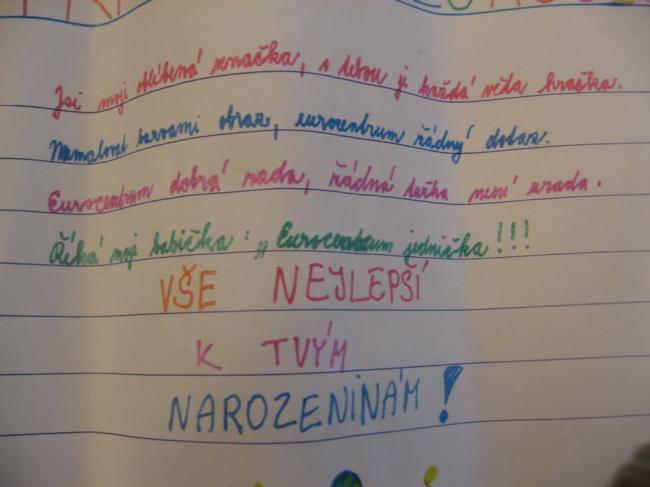 Jsi moji oblíbená značka, s tebou je každá věta hračka.
Namaloval barvami obraz, eurocentrum řádný dobraz.
Eurocentrum dobrá rada, řádná tužka není zrada.
Říká moji babička: „Eurocentrum jednička!!!
VŠE NEJLEPŠÍ
K TVÝM
NAROZENINÁM!